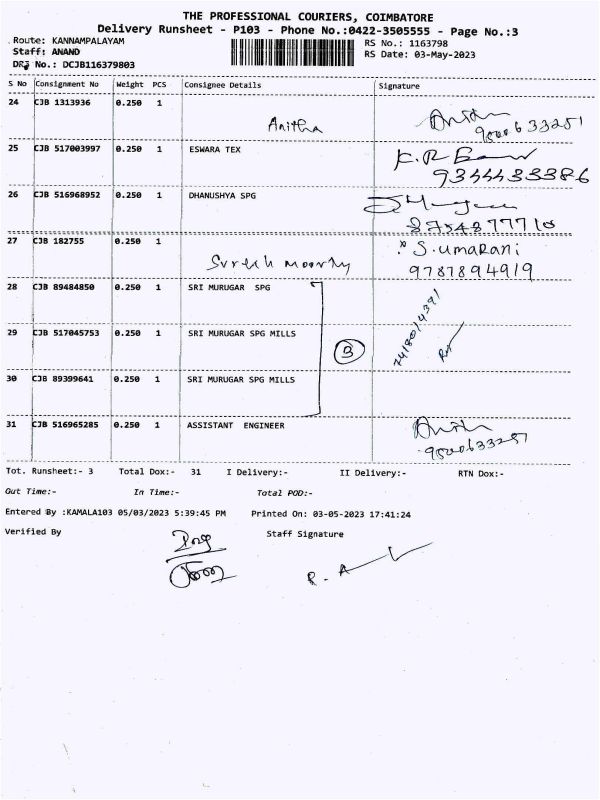 THE PROFESSIONAL COURIERS, COIMBATORE
Delivery Runsheet - P103 - Phone No.:0422-3505555 - Page No.:3
Route: KANNAMPALAYAM RS No.: 1163798
Staff: ANAND RS Date: 03-May-2023
DRS No.: DCJB116379803
S No Consignment No Weight PCS Consignee Details Signature
24 CJB 1313936 0.250 1
Anitha 9500633251
25 CJB 517003997 0.250 1 ESWARA TEX
9344433386
26 CJB 516968952 0.250 1 DHANUSHYA SPG
8754877710
27 CJB 182755 0.250 1 S.umaRani
Suresh moorthy 9787894919
28 CJB 89484850 0.250 1 SRI MURUGAR SPG
29 CJB 517045753 0.250 1 SRI MURUGAR SPG MILLS
3
7418014391
30 CJB 89399641 0.250 1 SRI MURUGAR SPG MILLS
31 CJB 516965285 0.250 1 ASSISTANT ENGINEER
9500633251
Tot. Runsheet:- 3 Total Dox:- 31 I Delivery:- II Delivery:- RTN Dox:-
Out Time:- In Time:- Total POD:-
Entered By :KAMALA103 05/03/2023 5:39:45 PM Printed On: 03-05-2023 17:41:24
Verified By Staff Signature